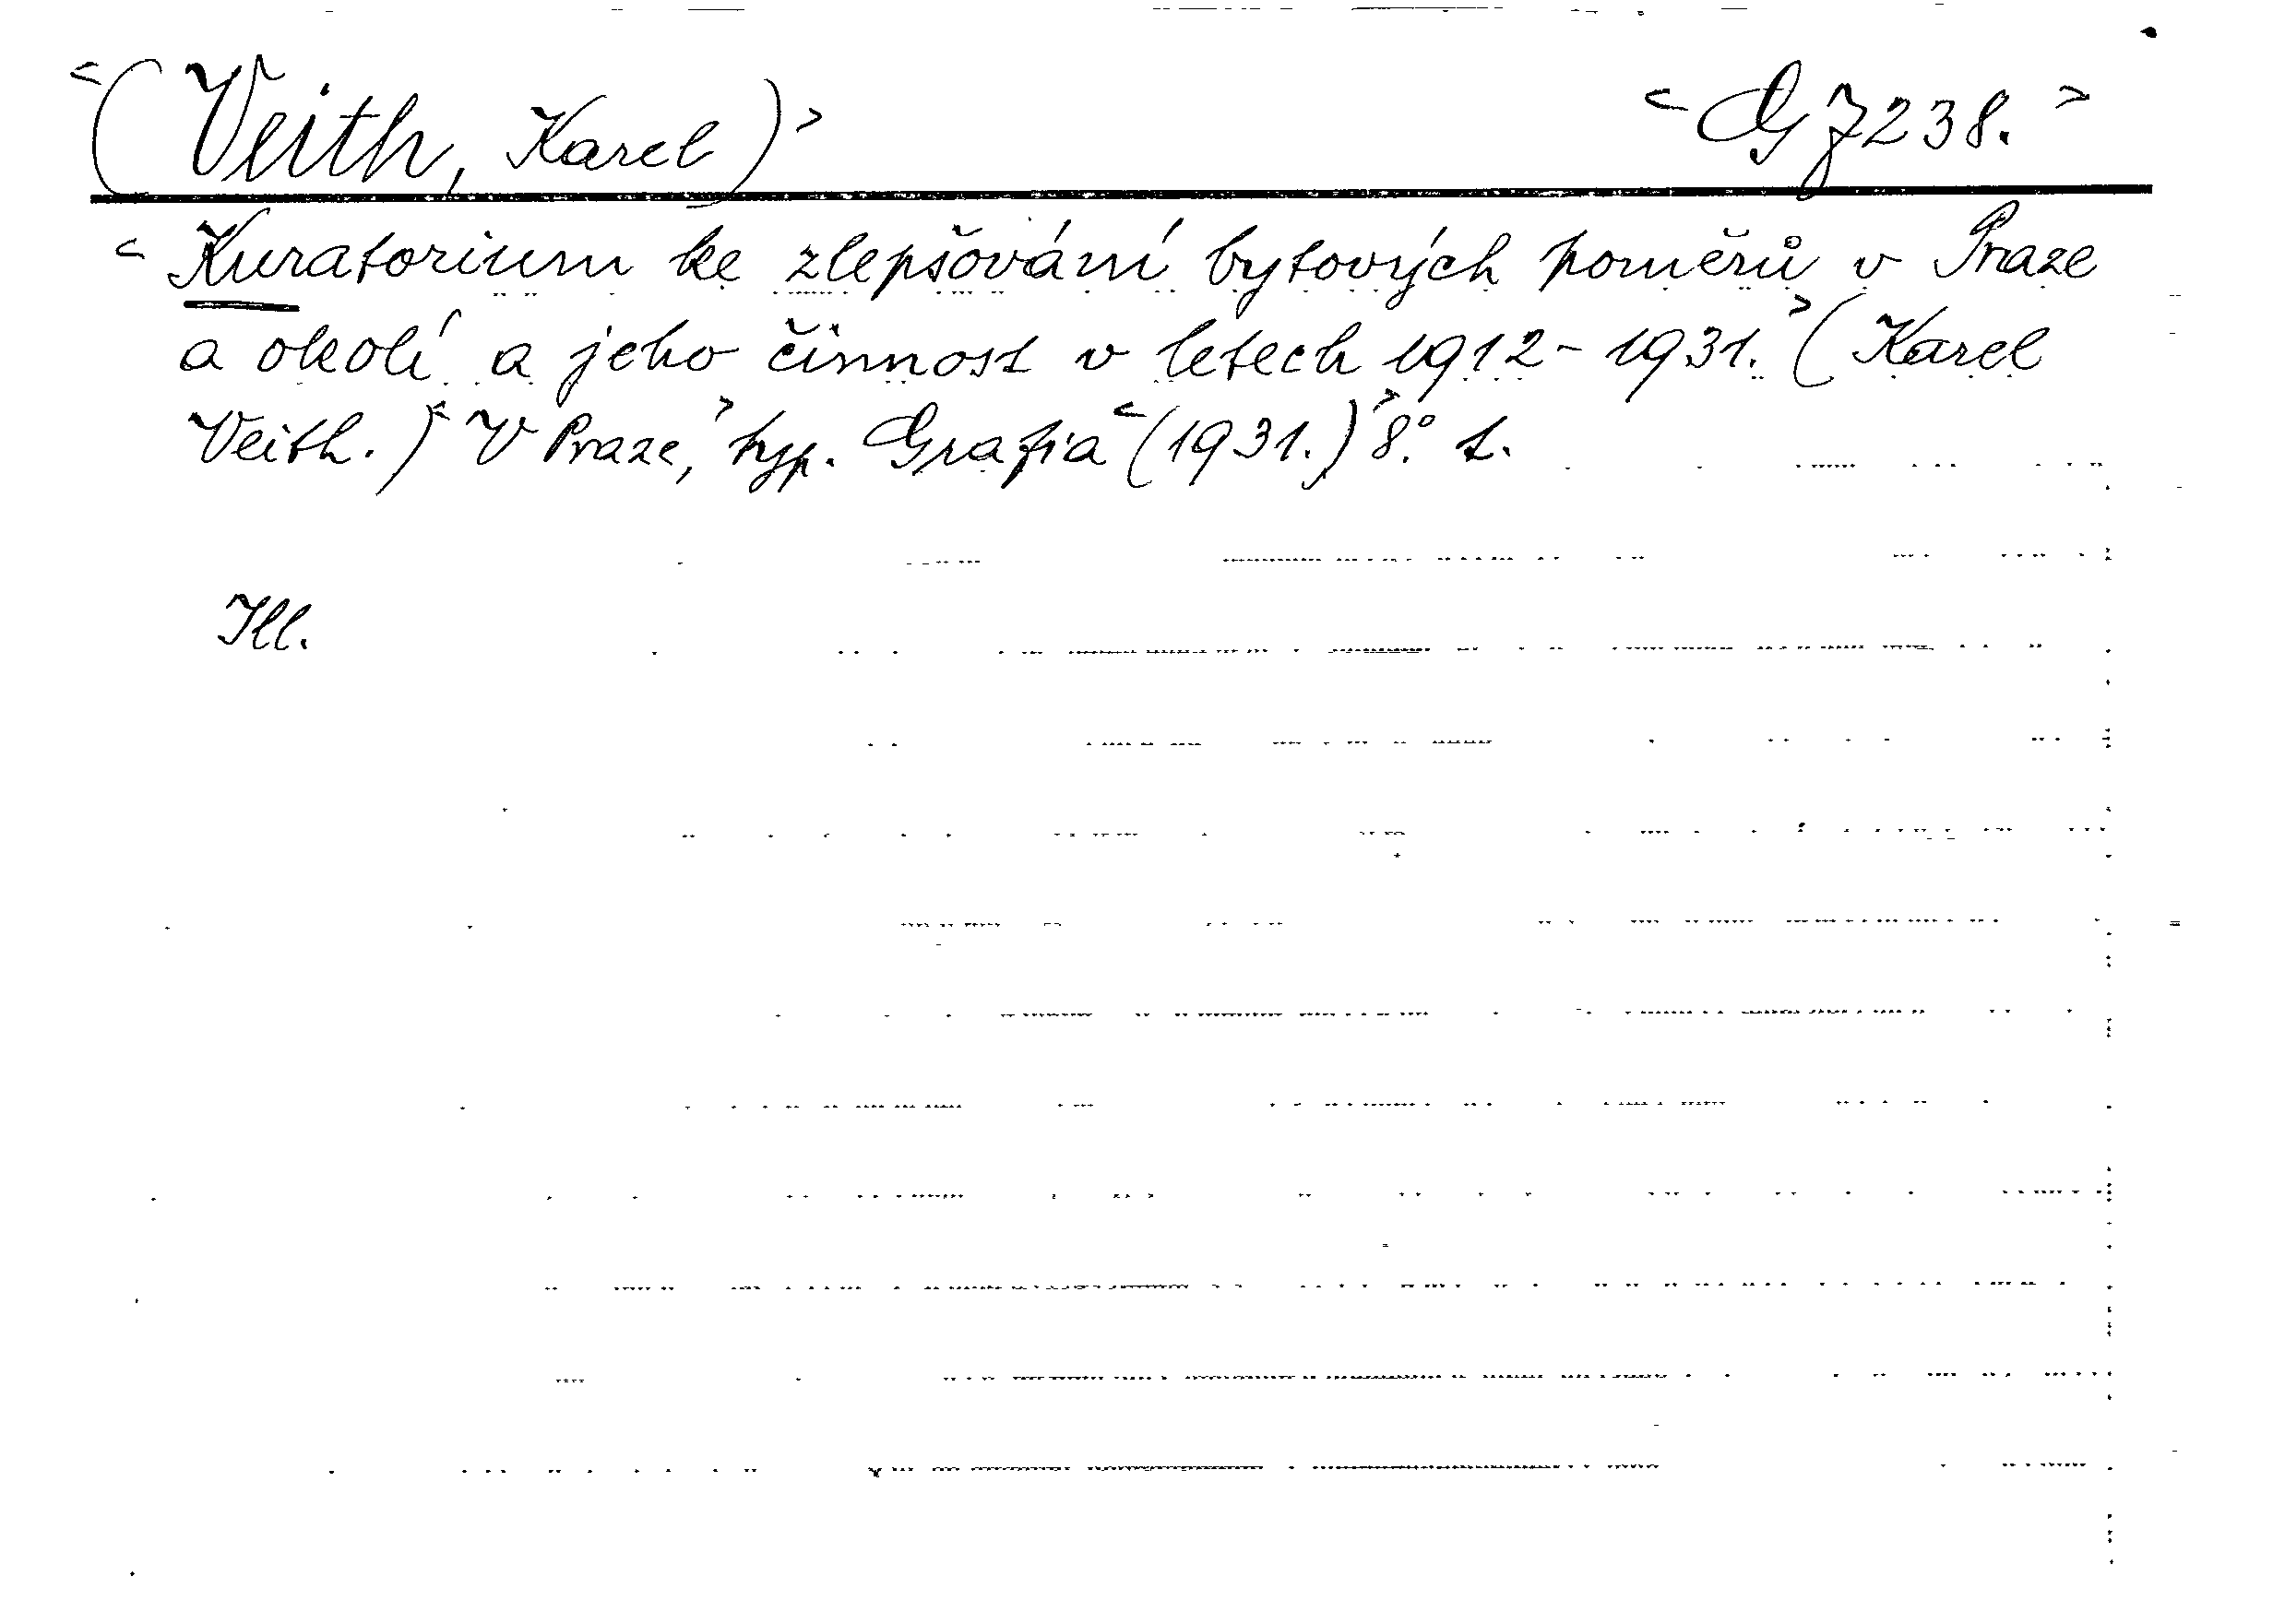 <(Veith, Karel)> <G 7238.>
<Kuratorium ke zlepšování bytových poměrů v Praze
a okolí a jeho činnost v letech 1912-1931.> (Karel
Veith.) <V Praze,> typ. Grafia <(1931.)> 8.° 1.
Ill.